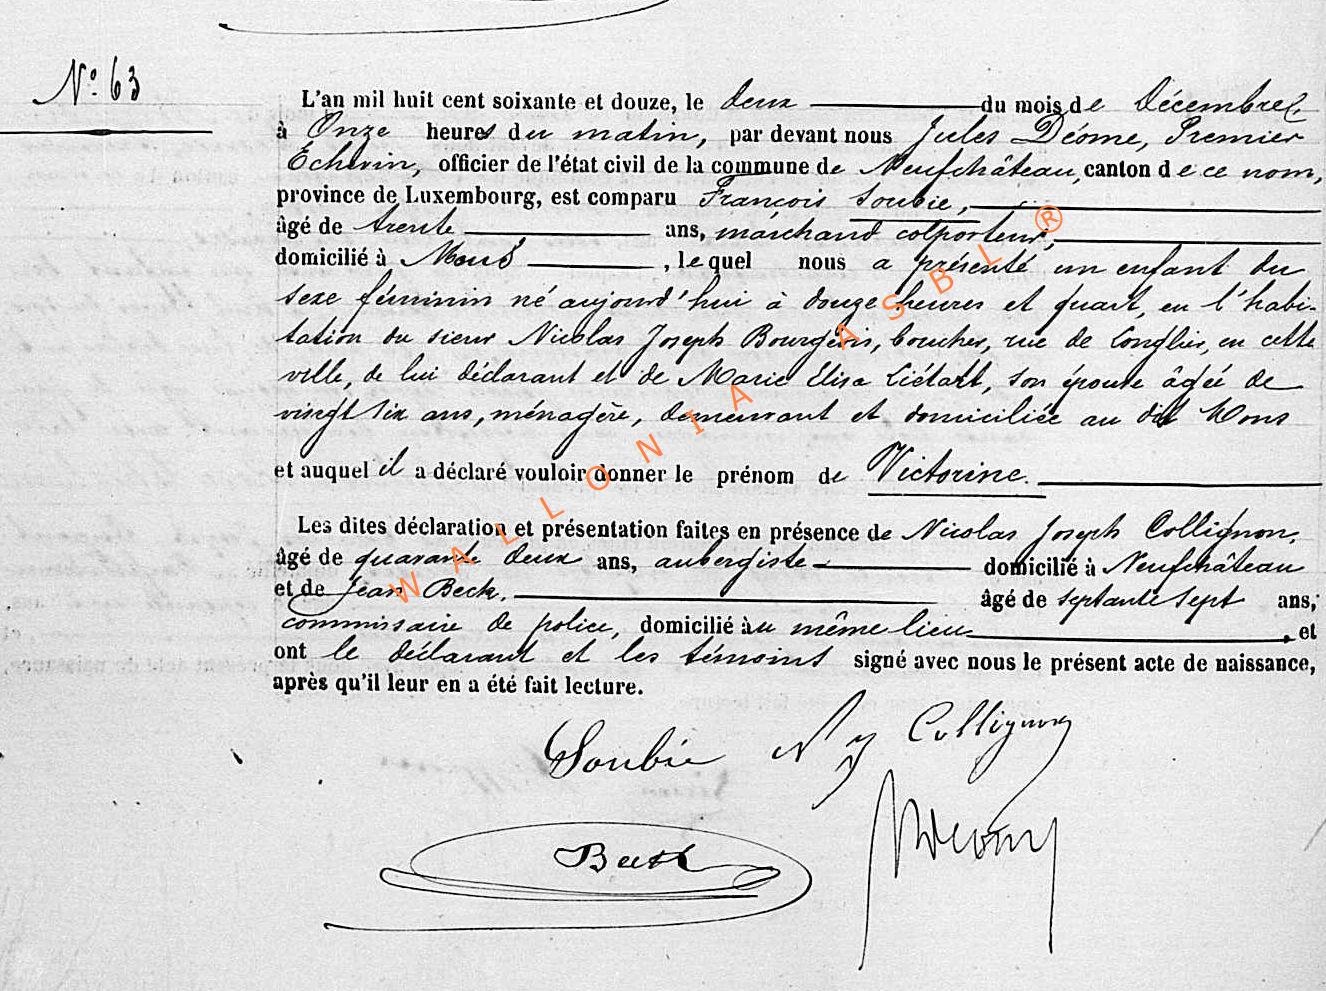 N° 63
L'an mil huit cent soixante et douze, le deux du mois de Décembre
à Onze heures du matin, par devant nous Jules Déome, Premier
Echevin, officier de l'état civil de la commune de Neufchâteau, canton de ce nom,
province de Luxembourg, est comparu François Soubie,
âgé de trente ans, marchand colporteur,
domicilié à Mons, lequel nous a présenté un enfant du
sexe féminin né aujourd'hui à douze heures et quart, en l'habi-
tation du sieur Nicolas Joseph Bourgeois, boucher, rue de Longlier, en cette
ville, de lui déclarant et de Marie Elisa Liétart, son épouse âgée de
vingt six ans, ménagère, demeurant et domiciliée au dit Mons
et auquel il a déclaré vouloir donner le prénom de Victorine.
Les dites déclaration et présentation faites en présence de Nicolas Joseph Collignon,
âgé de quarante deux ans, aubergiste domicilié à Neufchâteau
et de Jean Beck. âgé de septante sept ans,
commissaire de police, domicilié au même lieu, et
ont le déclarant et les témoins signé avec nous le présent acte de naissance,
après qu'il leur en a été fait lecture.
Soubie N J Collignon
Beck
WALLONIA ASBL ®